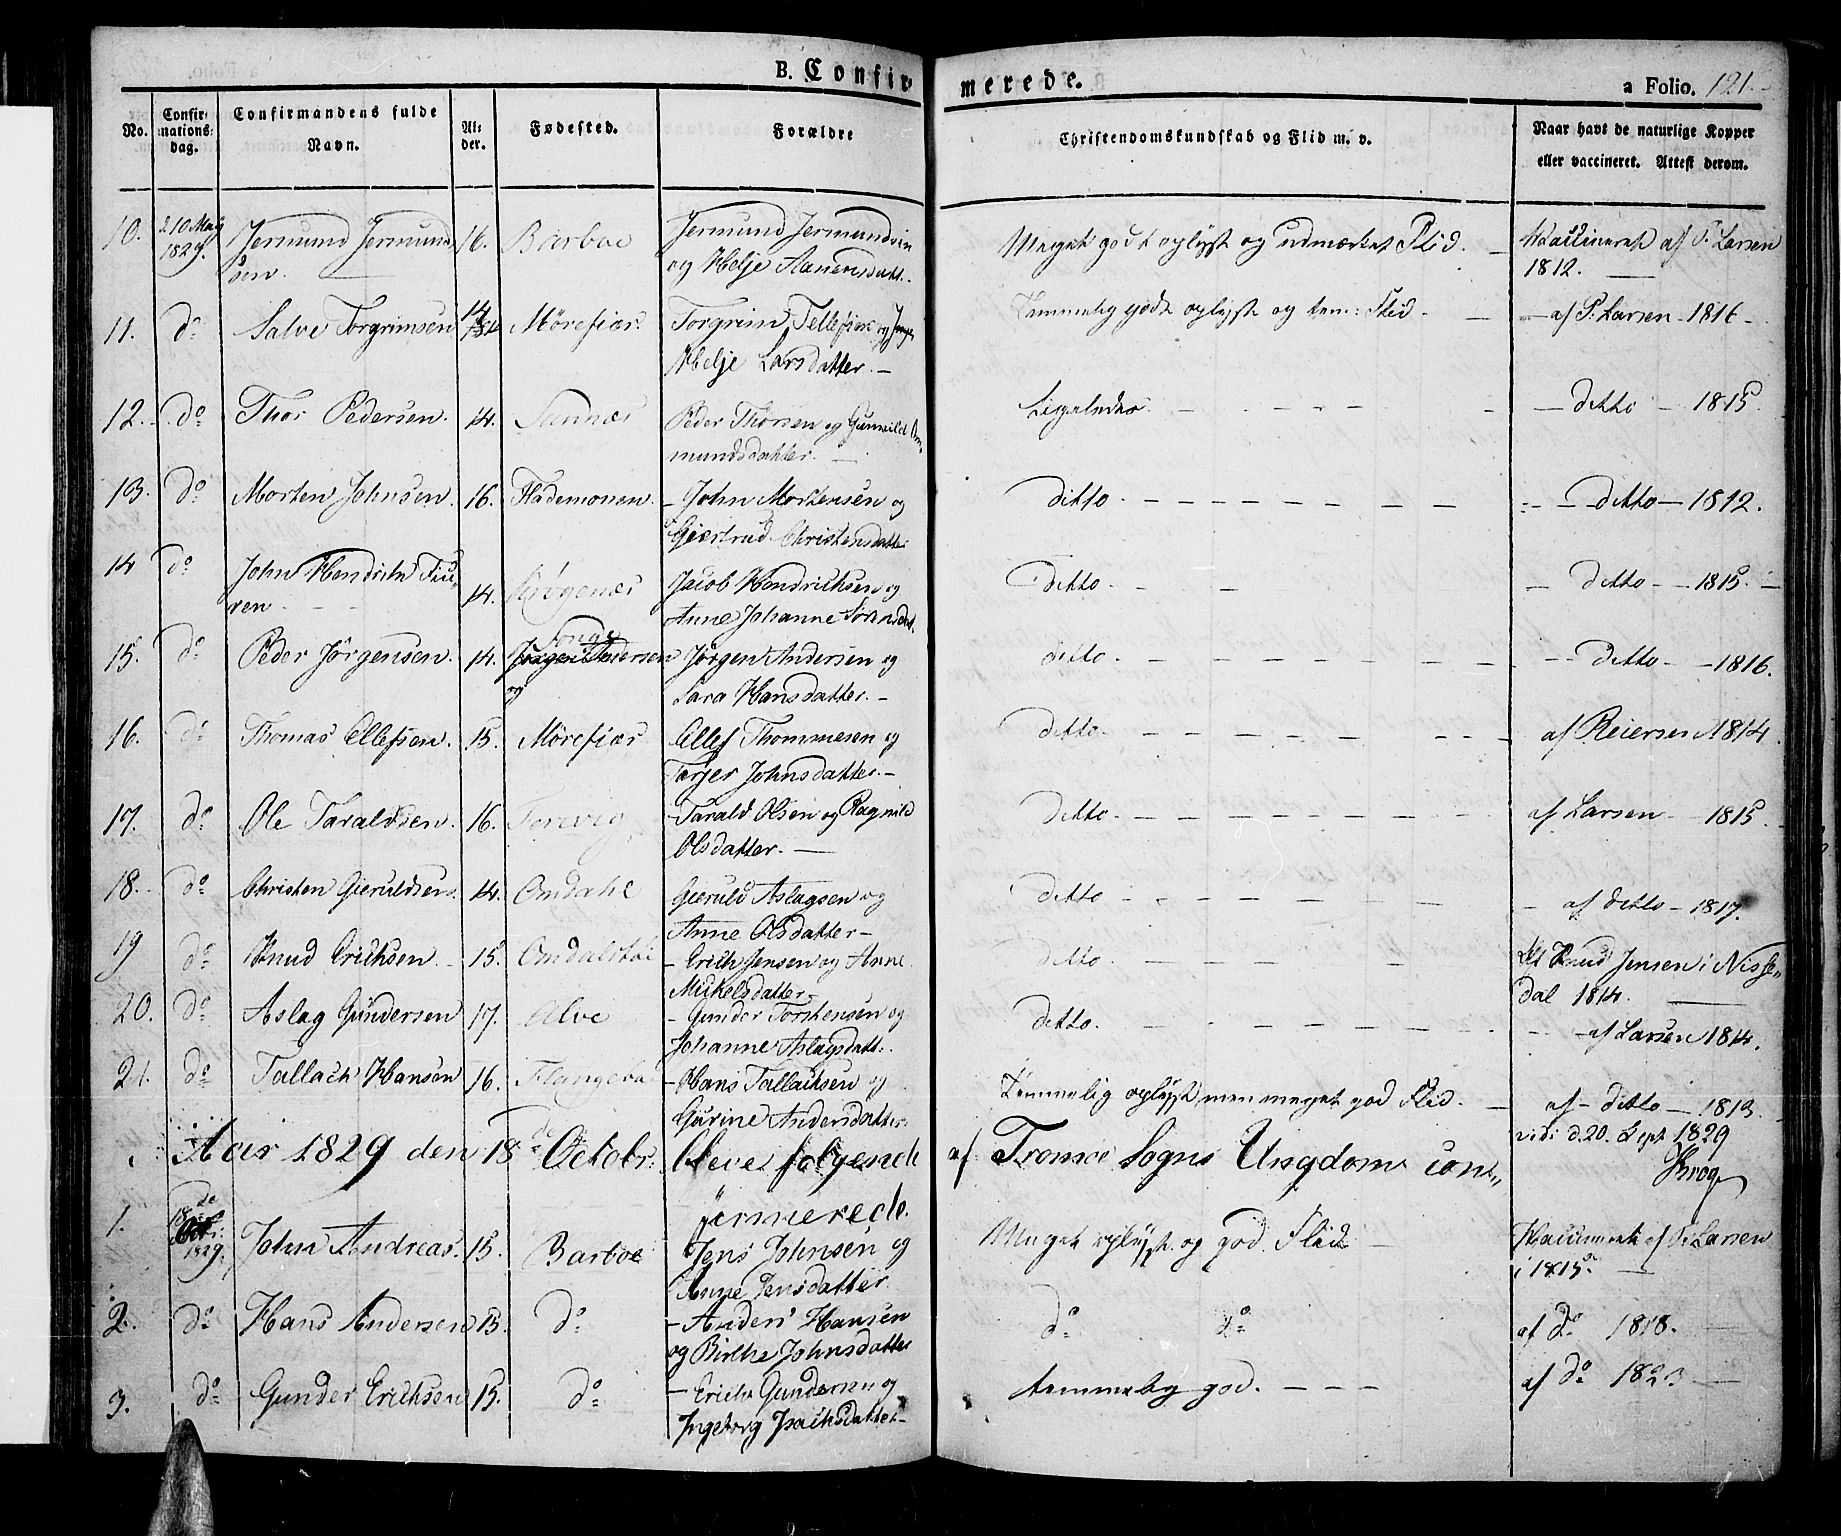 B. Confirmerede. a Folio. 121.
No. Confirmationsdag. Confirmandens fulde Navn. Alder. Fødested. Forældre Christendomskundskab og Flid m. v. Naar havt de naturlige Kopper eller vaccineret. Attest derom.
10. d. 10 May 1829. Jermund Jermundsen. 16. Barboe Jermund Jermundsen og Helje Aanensdatt. Meget godt oplyst og udmærket Flid. Vaccineret af P. Larsen 1812.
11. do Salve Torgrimsen 14 Mörefiær. Torgrim Tellefsen og Helje Larsdatter. Temmelig godt oplyst og tem: Flid. af P. Larsen 1816
12. do Thor Pedersen. 14. Sannæs Peder Thorsen og Gunnild Amundsdatter. Ligeledes. ditto 1815
13. do Morten Johnsen. 16. Flademonen. John Mortensen og Giertrud Christensdatter ditto ditto 1812.
14 do John Hendrich 14. Krøgenæs Jacob Hendrichsen og Anne Johanne Sörensdat. ditto. ditto 1815.
15. do Peder Jörgensen. 14. Songe Jörgen Andersen og Jörgen Andersen og Sara Hansdatter. ditto. ditto 1816.
16. do Thomas Ellefsen. 15. Mörefiær Ellef Thommesen og Torjer Johnsdatter. ditto. af Reiersen 1814.
17. do Ole Taraldsen. 16. Torevig Tarald Olsen og Ragnild Olsdatter. ditto. af Larsen 1815
18. do Christen Gieruldsen. 14. Omdahl Gieruld Aslagsen og Anne Olsdatter ditto af ditto 1817.
19 do Knud Erichsen. 15. Omdalstöe Erich Jensen og Anne Mikelsdatter ditto. af Knud Jensen i Nissedal 1814.
20. do Aslag Gundersen 17. Alve Gunder Torstensen og Johanne Aslagsdatt. ditto. af Larsen 1814.
21. do Tallach Hansen 16. Flangeboe Hans Tallachsen og Gurine Andersdatter. Temmelig oplyst men meget god Flid. af ditto 1813.
vidi d. 20. Sept 1829
Krog
Aar 1829 den 18de Octobr: bleve følgende af Tromøe Sogns Ungdom confirmerede.
1. 18de Oct: 1829. John Andreas. 15. Barboe Jens Johnsen og Anne Jensdatter. Meget oplyst og god Flid Vaccineret af P. Larsen i 1815.
2. do Hans Andersen 15. do Anders Hansen og Birthe Johnsdatter do do af do 1818.
3. do Gunder Erichsen 15. do Erich Gundersen og Ingeborg Isachsdatter temmelig god. af do 1823